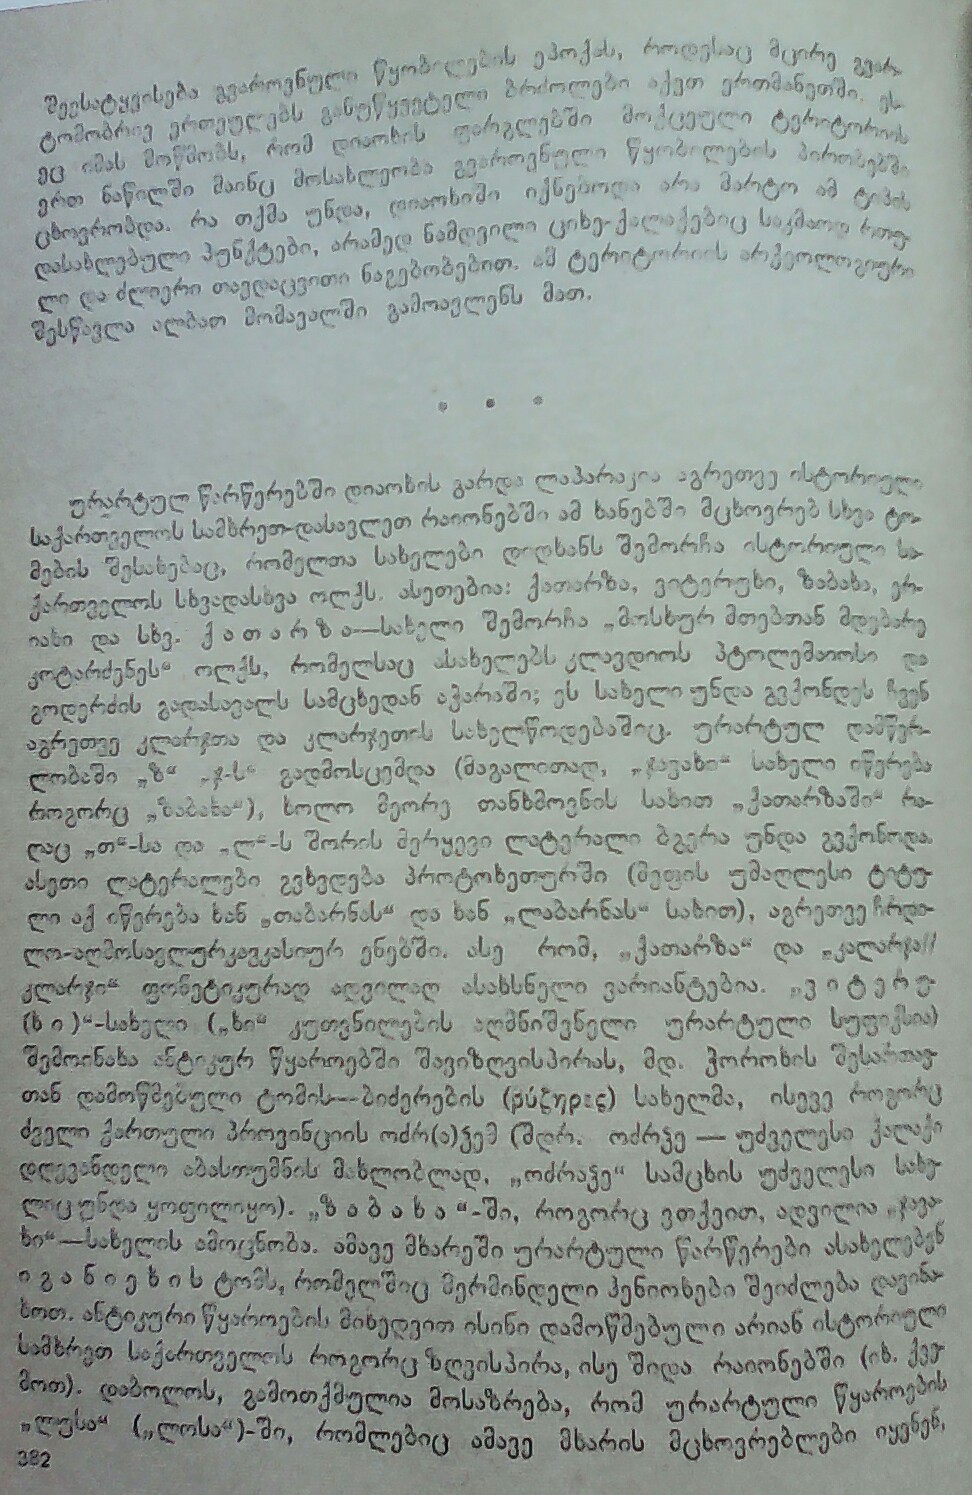 შეესატყვისება გვაროვნული წყობილების ეპოქას, როდესაც მცირე გვარ-
ტომობრივ ერთეულებს განუწყვეტელი ბრძოლები აქვთ ერთმანეთში. ეს
ეც იმას მოწმობს, რომ დიაოხის ფარგლებში მოქცეული ტერიტორიის
ერთ ნაწილში მაინც მოსახლეობა გვაროვნული წყობილების პირობებში
ცხოვრობდა. რა თქმა უნდა, დიაოხიში იქნებოდა არა მარტო ამ ტიპის
დასახლებული პუნქტები, არამედ ნამდვილი ციხე-ქალაქებიც საკმაოდ რთუ-
ლი და ძლიერი თავდაცვითი ნაგებობებით. ამ ტერიტორიის არქეოლოგიური
შესწავლა ალბათ მომავალში გამოავლენს მათ.
* * *
ურარტულ წარწერებში დიაოხის გარდა ლაპარაკია აგრეთვე ისტორიული
საქართველოს სამხრეთ-დასავლეთ რაიონებში ამ ხანებში მცხოვრებ სხვა ტო-
მების შესახებაც, რომელთა სახელები დიდხანს შემორჩა ისტორიული სა-
ქართველოს სხვადასხვა ოლქს. ასეთებია: ქათარზა, ვიტერუხი, ზაბახა, ერ-
იახი და სხვ. ქათარზა—სახელი შემორჩა „მოსხურ მთებთან მდებარე
კოტარძენეს“ ოლქს, რომელსაც ასახელებს კლავდიოს პტოლემაიოსი და
გოდერძის გადასავალს სამცხედან აჭარაში; ეს სახელი უნდა გვქონდეს ჩვენ
აგრეთვე კლარჯთა და კლარჯეთის სახელწოდებაშიც. ურარტულ დამწერ-
ლობაში „ზ“ „ჯ-ს“ გადმოსცემდა (მაგალითად, „ჯავახი“ სახელი იწერება
როგორც „ზაბახა“), ხოლო მეორე თანხმოვნის სახით „ქათარზაში“ რა-
ღაც „თ“-სა და „ლ“-ს შორის მერყევი ლატერალი ბგერა უნდა გვქონოდა.
ასეთი ლატერალები გვხვდება პროტოხეთურში (მეფის უმაღლესი ტიტუ-
ლი აქ იწერება ხან „თაბარნას“ და ხან „ლაბარნას“ სახით), აგრეთვე ჩრდი-
ლო-აღმოსავლურკავკასიურ ენებში. ასე რომ, „ქათარზა“ და „კალარჯა//
კლარჯი“ ფონეტიკურად ადვილად ასახსნელი ვარიანტებია. „ვიტერუ-
(ხი)“-სახელი („ხი“ კუთვნილების აღმნიშვნელი ურარტული სუფიქსია)
შემოინახა ანტიკურ წყაროებში შავიზღვისპირას, მდ. ჭოროხის შესართავ-
თან დამოწმებული ტომის—ბიძერების (βύζηρες) სახელმა, ისევე როგორც
ძველი ქართული პროვინციის ოძრ(ა)ჴემ (შდრ. ოძრჴე — უძველესი ქალაქი
დღევანდელი აბასთუმნის მახლობლად, „ოძრაჴე“ სამცხის უძველესი სახე-
ლიც უნდა ყოფილიყო). „ზაბახა“-ში, როგორც ვთქვით, ადვილია „ჯავა-
ხი“—სახელის ამოცნობა. ამავე მხარეში ურარტული წარწერები ასახელებენ
იგანიეხის ტომს, რომელშიც მერმინდელი ჰენიოხები შეიძლება დავინა-
ხოთ. ანტიკური წყაროების მიხედვით ისინი დამოწმებული არიან ისტორიული
სამხრეთ საქართველოს როგორც ზღვისპირა, ისე შიდა რაიონებში (იხ. ქვე-
მოთ). დაბოლოს, გამოთქმულია მოსაზრება, რომ ურარტული წყაროების
„ლუსა“ („ლოსა“)-ში, რომლებიც ამავე მხარის მცხოვრებლები იყვნენ,
382